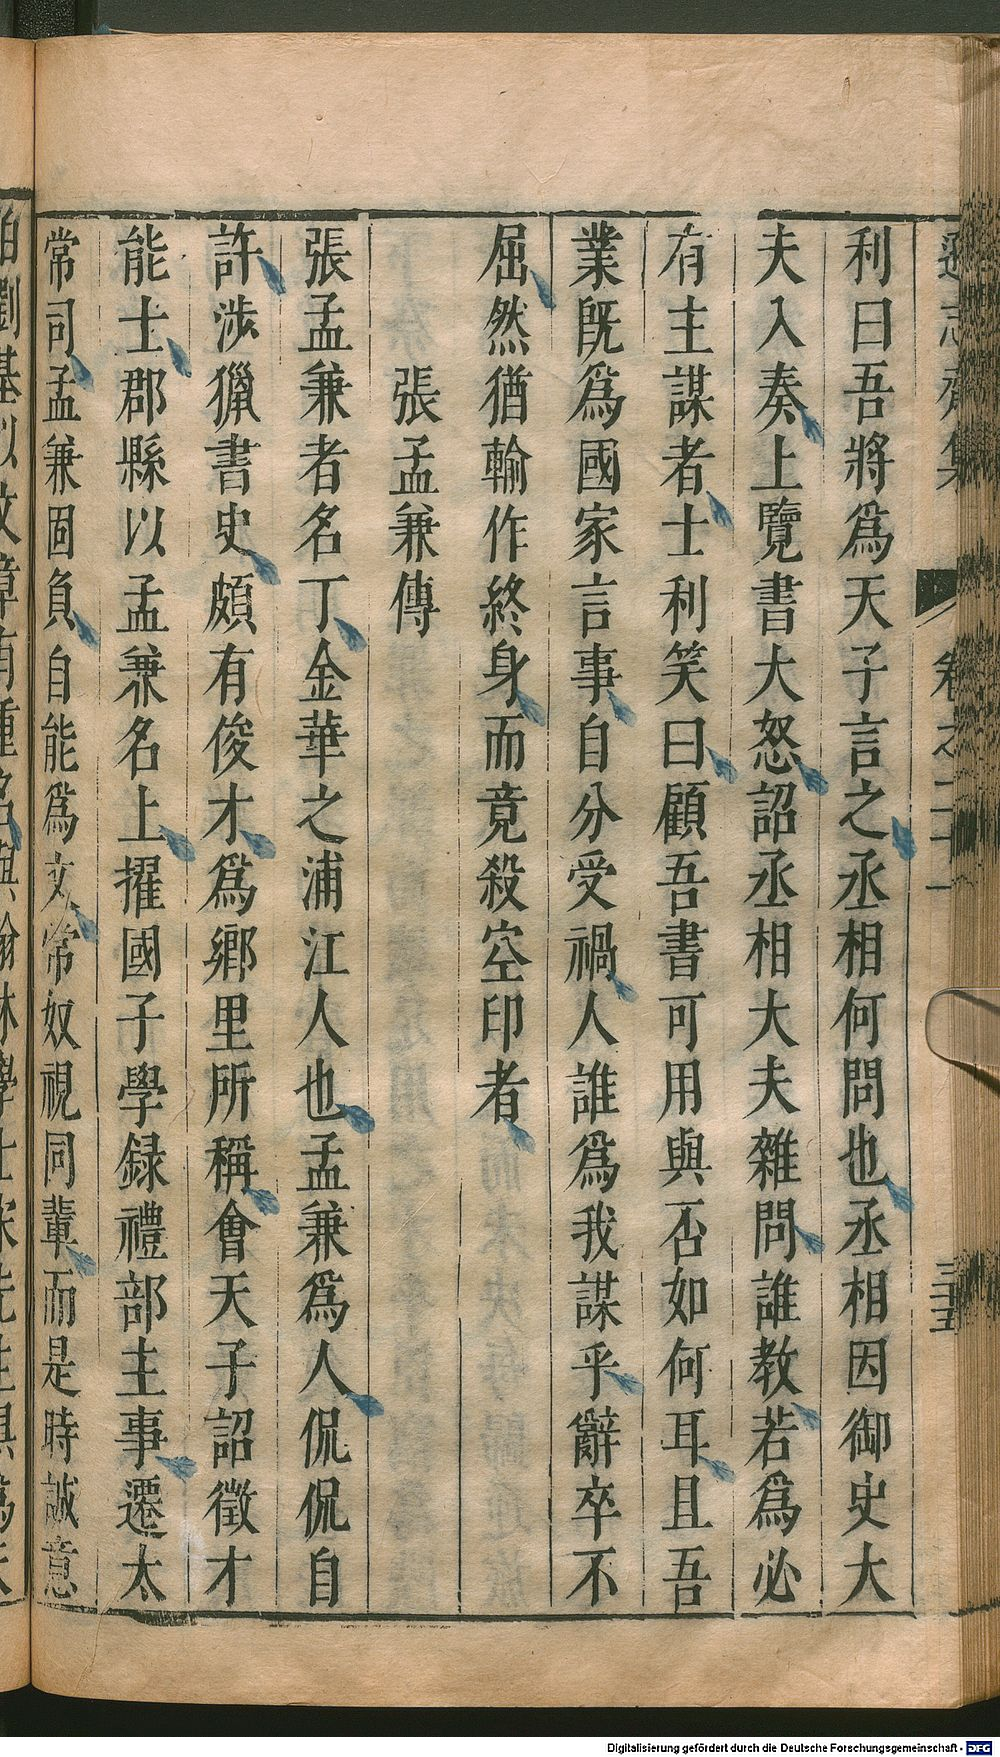 遜志齋集 卷之二十一 三十五
利曰吾將爲天子言之丞相何問也丞相因御史大
夫入奏上覽書大怒詔丞相大夫雜問誰教若爲必
有主謀者士利笑曰顧吾書可用與否如何耳且吾
業既爲國家言事自分受禍人誰爲我謀乎辭卒不
屈然猶輸作終身而竟殺空印者
張孟兼傳
張孟兼者名丁金華之浦江人也孟兼爲人侃侃自
許涉獵書史頗有俊才爲鄉里所稱會天子詔徵才
能士郡縣以孟兼名上擢國子學録禮部主事遷太
常司孟兼固負自能爲文常奴視同輩而是時誠意
伯劉基以文章有重名與翰林學士宋先生俱爲
Digitalisierung gefördert durch die Deutsche Forschungsgemeinschaft - DFG